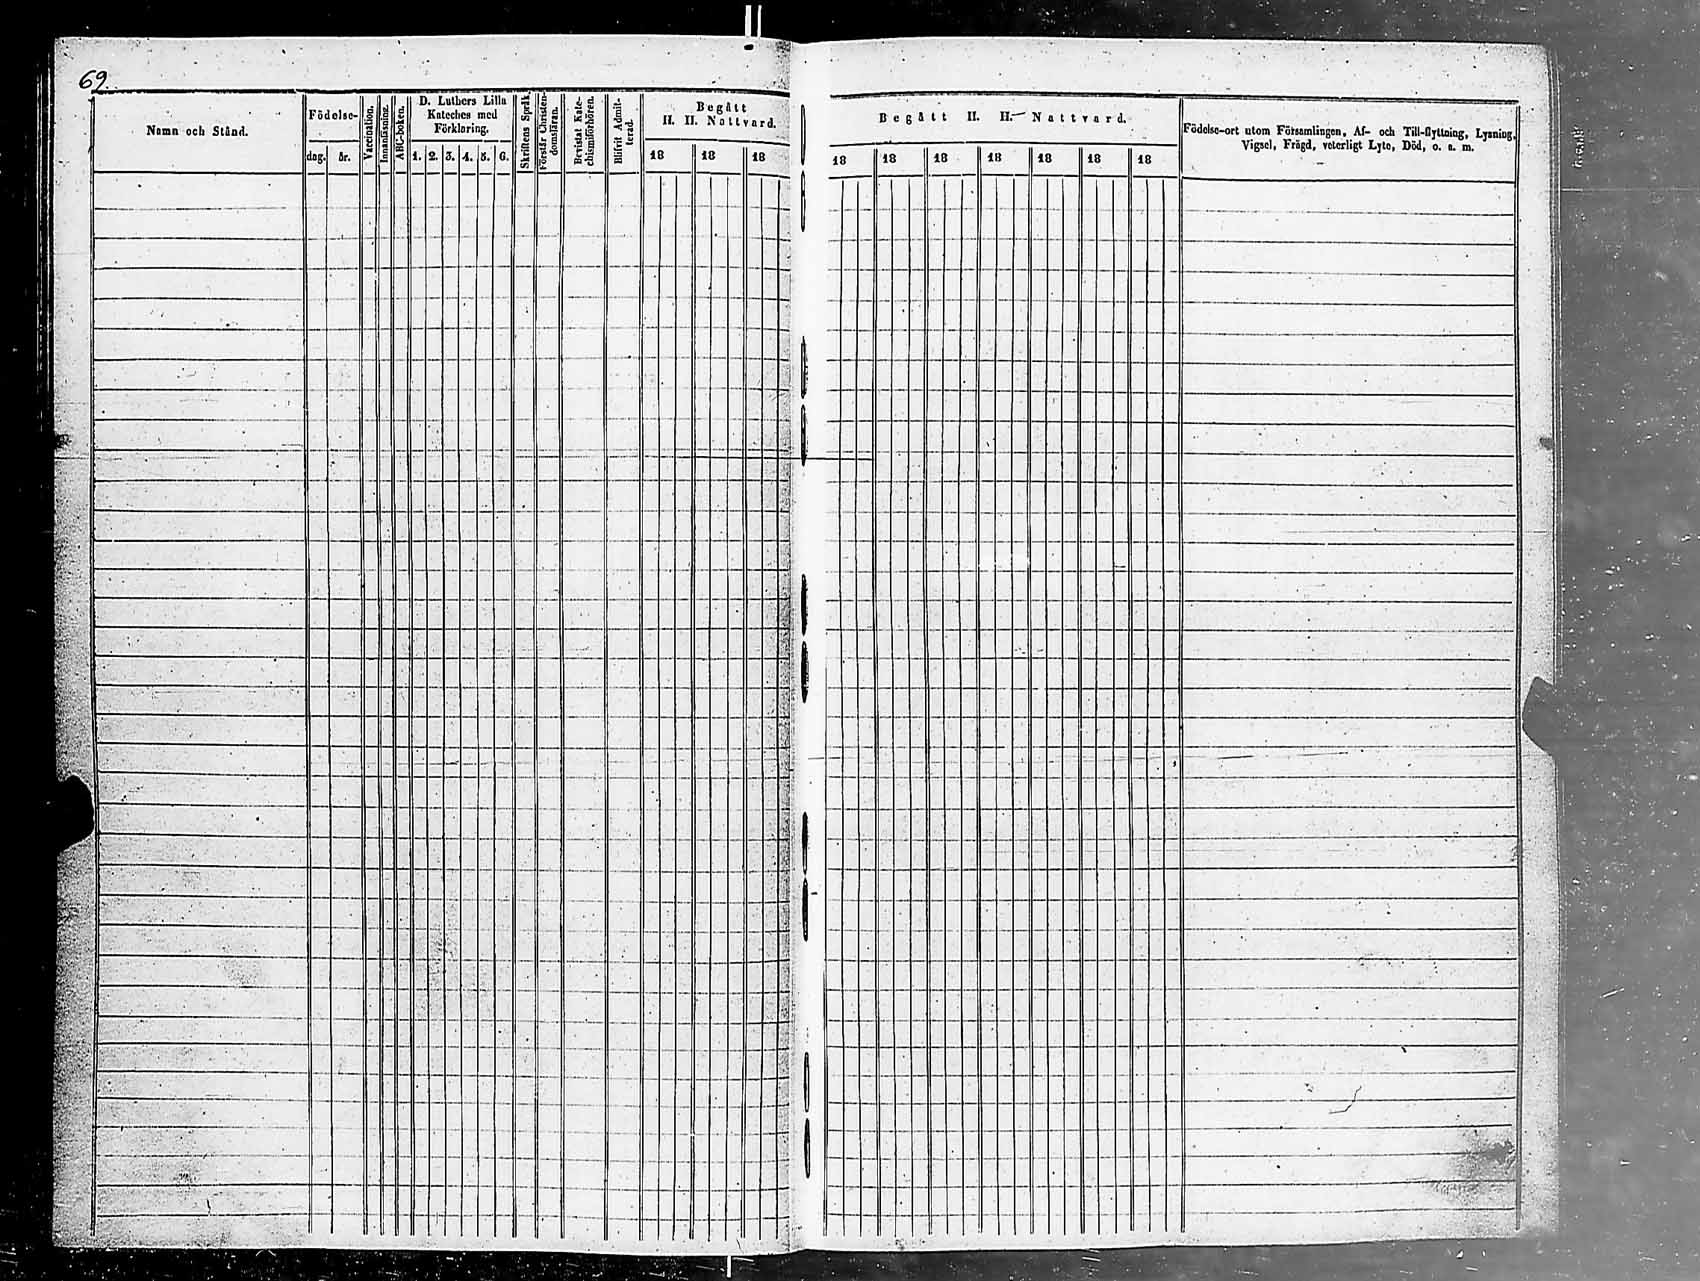 69.
Namn och Stånd.
Födelse-
dag. år.
Vaccination.
Innanläsning.
ABC-boken.
D. Luthers Lilla
Kateches med
Förklaring.
1. 2. 3. 4. 5. 6.
Skriftens Språk.
Förstår Christen-
domsläran.
Bevistat Kate-
chismiförhören.
Blifvit Admit-
terad.
Begått
H. H. Nattvard.
18 18 18
Begått H. H. Nattvard.
18 18 18 18 18 18 18
Födelse-ort utom Församlingen, Af- och Till-flyttning, Lysning,
Vigsel, Frägd, veterligt Lyte, Död, o. s. m.